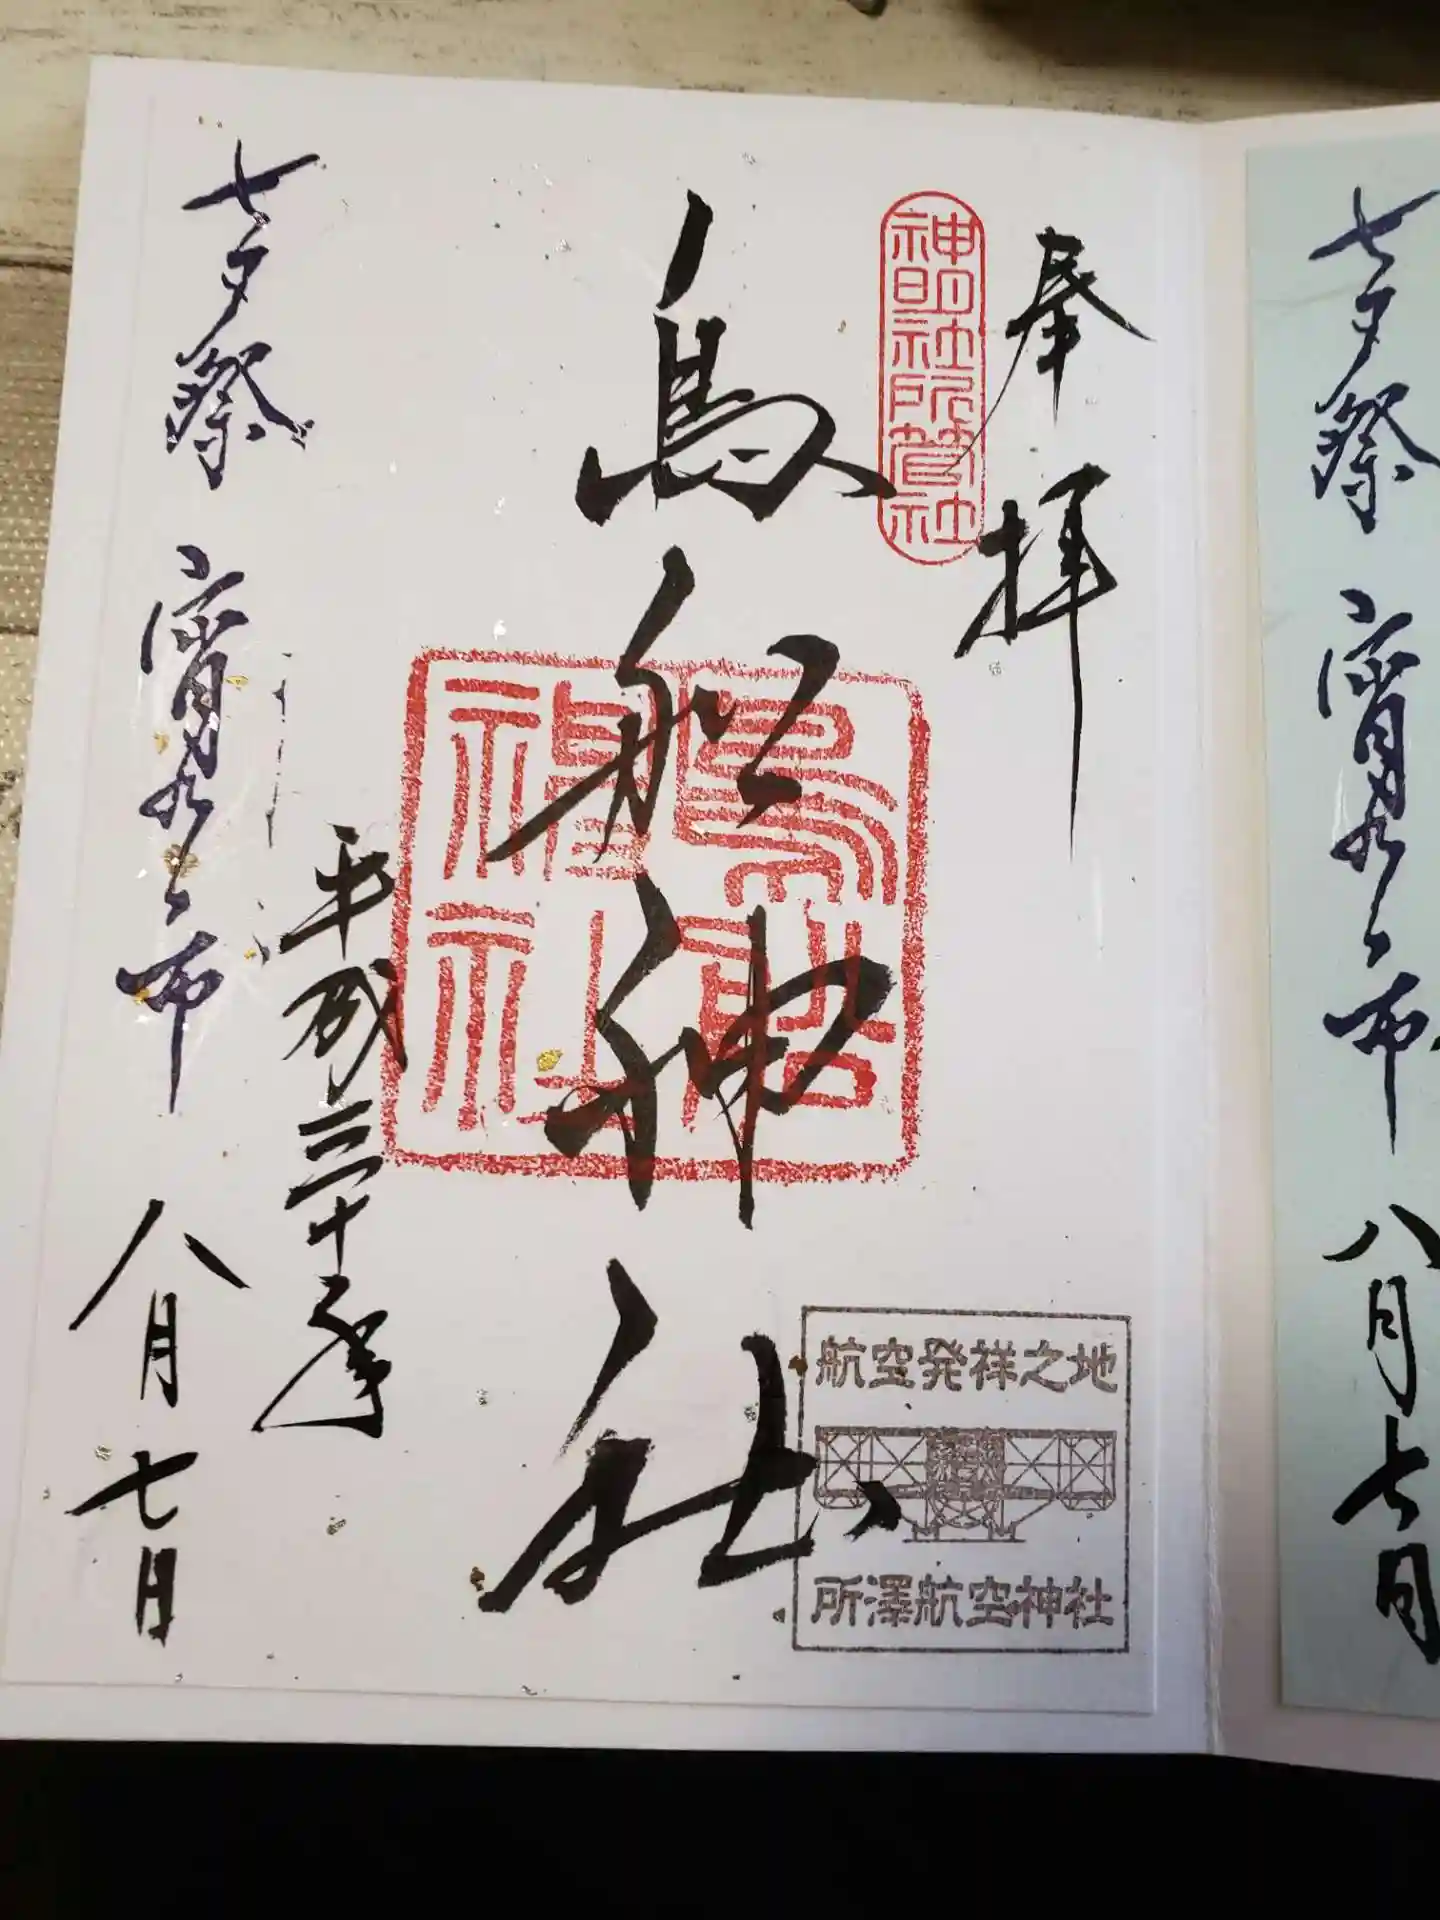 七夕祭 宵乃市 八月七日
奉拝
神明社所管社
鳥船神社
鳥船
神社
航空発祥之地
所澤航空神社
平成三十年
七夕祭 宵乃市 八月七日